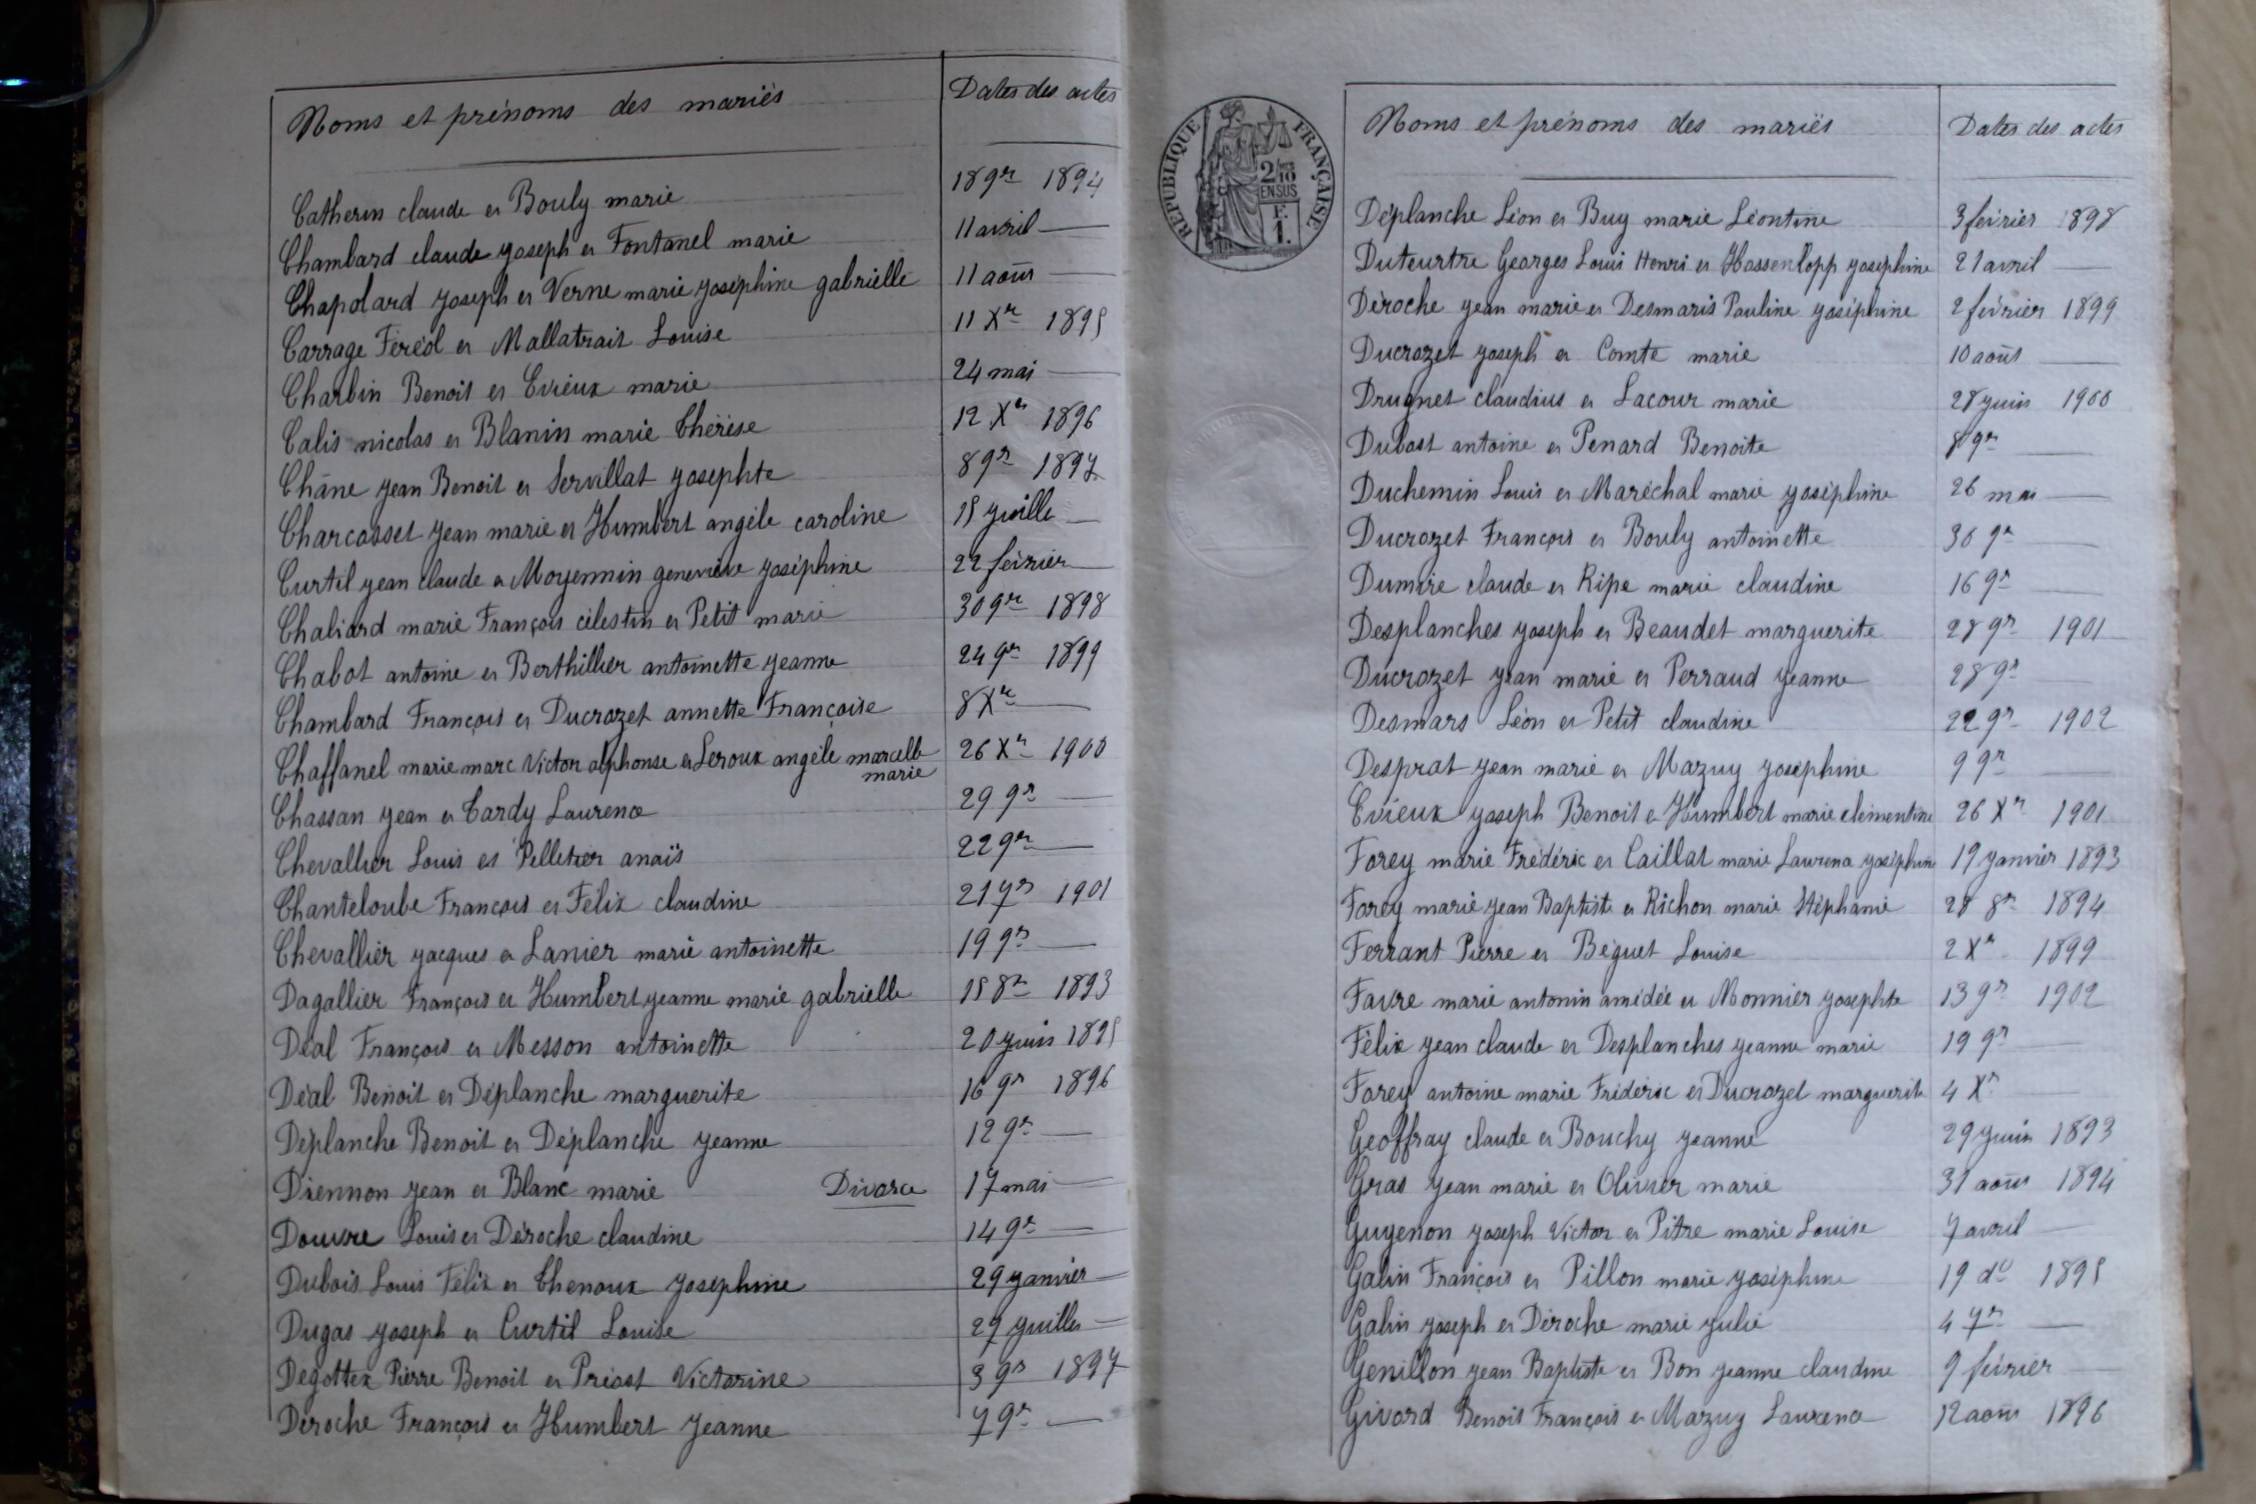 Noms et prénoms des mariés Dates des actes
Catherin claude et Bouly marie 18 9re 1894
Chambard claude joseph et Fontanel marie 11 avril —
Chapolard joseph et Verne marie joséphine gabrielle 11 août —
Carrage Féréol et Mallatrait Louise 11 Xre 1895
Charbin Benoit et Evieux marie 24 mai —
Calis nicolas et Blanin marie Thérèse 12 Xre 1896
Châne jean Benoit et Servillat josephte 8 9re 1897
Charcosset jean marie et Humbert angèle caroline 15 juille —
Curtil jean claude et Moyennin geneviève joséphine 22 février —
Chaliard marie François célestin et Petit marie 30 9re 1898
Chabot antoine et Berthillier antoinette jeanne 24 9re 1899
Chambard François et Ducrozet annette Françoise 8 Xre —
Chaffanel marie marc Victor alphonse et Leroux angèle marcelle 26 Xre 1900
marie
Chassan jean et Cardy Laurence 29 9re —
Chevallier Louis et Pelletier anaïs 22 9re —
Chanteloube François et Félix claudine 21 7re 1901
Chevallier jacques et Lanier marie antoinette 19 9re —
Dagallier François et Humbert jeanne marie gabrielle 15 8re 1893
Déal François et Messon antoinette 20 juin 1895
Déal Benoit et Déplanche marguerite 16 9re 1896
Déplanche Benoit et Déplanche jeanne 12 9re —
Diennon jean et Blanc marie Divorce 17 mai —
Douvre Louis et Déroche claudine 14 9re —
Dubois Louis Félix et Chenoux josephine 29 janvier —
Dugas joseph et Curtil Louise 27 juillet —
Degottex Pierre Benoit et Priost Victorine 3 9re 1897
Déroche François et Humbert jeanne 7 9re —
RÉPUBLIQUE FRANÇAISE
2/10
EN SUS
F.
1.
Noms et prénoms des mariés Dates des actes
Déplanche Léon et Buy marie Léontine 3 février 1898
Duteurtre Georges Louis Henri et Hossenlopp joséphine 21 avril —
Déroche jean marie et Desmaris Pauline joséphine 2 février 1899
Ducrozet joseph et Comte marie 10 août —
Drugnet claudius et Lacour marie 28 juin 1900
Dubost antoine et Penard Benoite 8 9re —
Duchemin Louis et Maréchal marie joséphine 26 mai —
Ducrozet François et Bouly antoinette 30 9re —
Dumire claude et Ripe marie claudine 16 9re —
Desplanches joseph et Beaudet marguerite 28 9re 1901
Ducrozet jean marie et Perraud jeanne 28 9re —
Desmars Léon et Petit claudine 22 9re 1902
Desprat jean marie et Mazuy joséphine 9 9re —
Evieux joseph Benoit et Humbert marie clémentine 26 Xre 1901
Forey marie Frédéric et Caillat marie Laurence joséphine 19 janvier 1893
Forey marie jean Baptiste et Richon marie Stéphanie 28 8re 1894
Ferrant Pierre et Béguet Louise 2 Xre 1899
Favre marie antonin amédée et Monnier josephte 13 9re 1902
Félix jean claude et Desplanches jeanne marie 19 9re —
Forey antoine marie Frédéric et Ducrozet marguerite 4 Xre —
Geoffray claude et Bouchy jeanne 29 juin 1893
Gras jean marie et Olivier marie 31 août 1894
Guyenon joseph Victor et Pitre marie Louise 7 avril —
Galin François et Pillon marie joséphine 19 do 1895
Galin joseph et Déroche marie julie 4 7re —
Genillon jean Baptiste et Bon jeanne claudine 9 février —
Givord Benoit François et Mazuy Laurence 12 août 1896